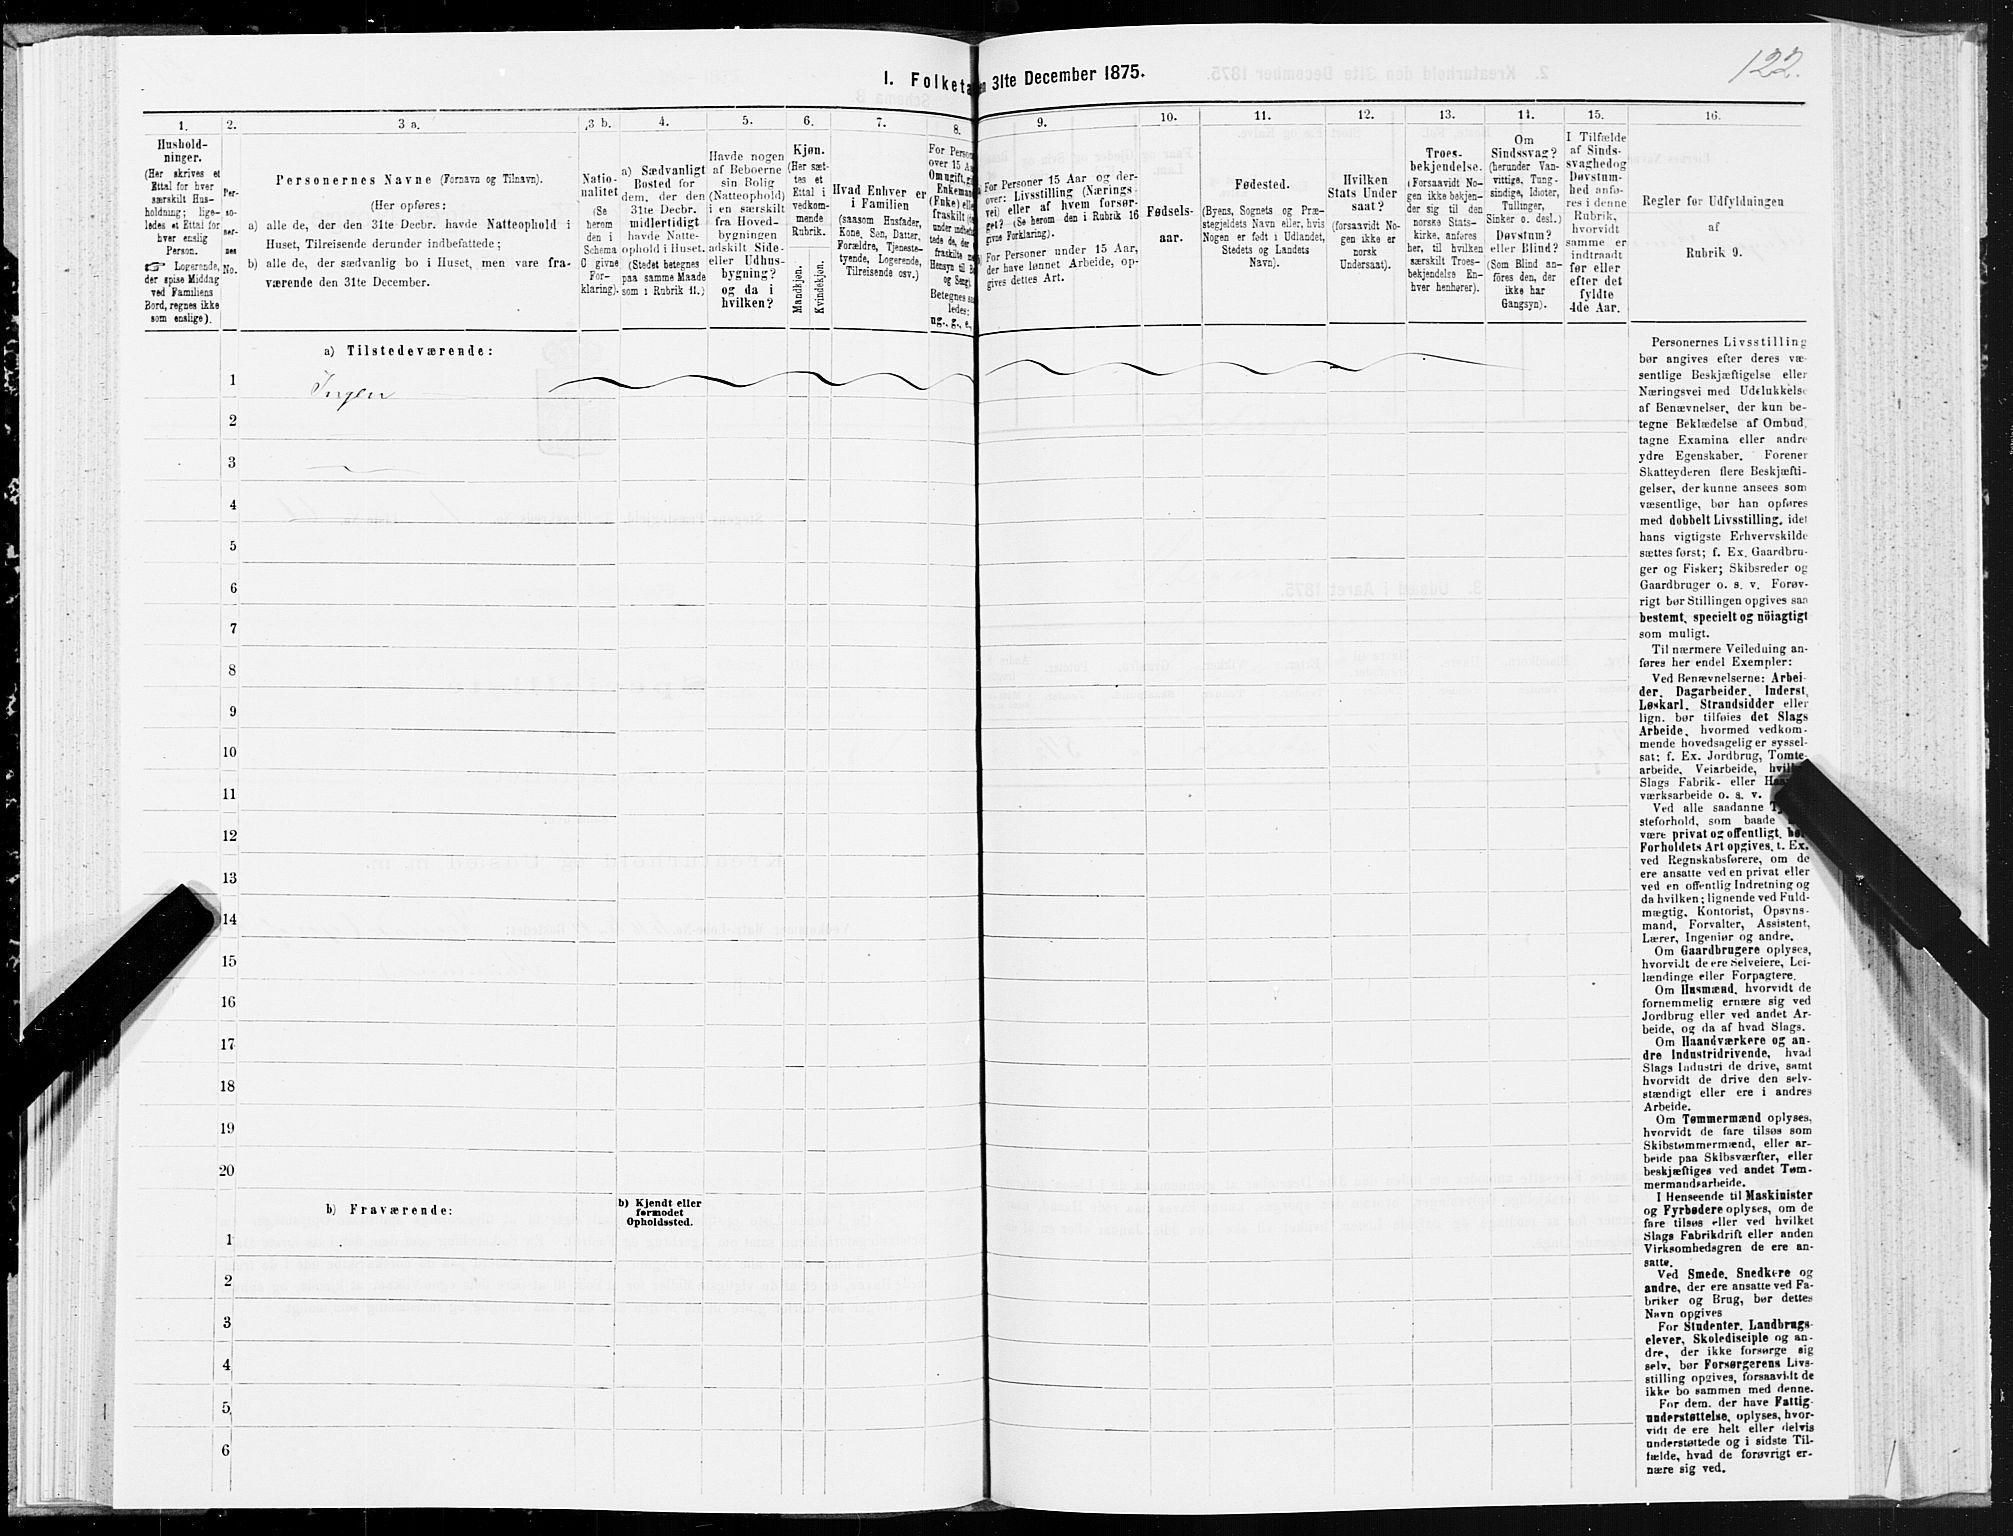 122.
I. Folketa
en 31te December 1875.
1.
Hushold-
ninger.
(Her skrives et
Ettal for hver
særskilt Hus-
holdning; lige-
ledes et Ettal for
hver enslig
Person.
☞ Logerende,
der spise Middag
ved Familiens
Bord, regnes ikke
som enslige).
2.
Per-
so-
ner-
nes
No.
3 a.
Personernes Navne (Fornavn og Tilnavn).
(Her opføres:
a) alle de, der den 31te Decbr. havde Natteophold i
Huset, Tilreisende derunder indbefattede;
b) alle de, der sædvanlig bo i Huset, men vare fra-
værende den 31te December.
3 b.
Natio-
nalitet
(Se
herom
den i
Schema
C givne
For-
klaring).
4.
a) Sædvanligt
Bosted for
dem, der den
31te Decbr.
midlertidigt
havde Natte-
ophold i Huset.
(Stedet betegnes
paa samme Maade
som i Rubrik 11.)
5.
Havde nogen
af Beboerne
sin Bolig
(Natteophold)
i en særskilt
fra Hoved-
bygningen
adskilt Side-
eller Udhus-
bygning?
og da i
hvilken?
6.
Kjøn.
(Her sæt-
tes et
Ettal i
vedkom-
mende
Rubrik.
Mandkjøn.
Kvindekjøn.
7.
Hvad Enhver er
i Familien
(saasom Husfader,
Kone, Søn, Datter,
Forældre, Tjeneste-
tyende, Logerende,
Tilreisende osv.)
8.
For Person
over 15 Aa
Om ugift, g
Enkeman
(Enke) elle
fraskilt
Betegnes saa
ledes:
ug., g., e.,
9.
For Personer 15 Aar og der-
over: Livsstilling (Nærings-
vei) eller af hvem forsør-
get? (Se herom den i Rubrik 16
givne Forklaring).
For Personer under 15 Aar,
der have lønnet Arbeide, op-
gives dettes Art.
10.
Fødsels-
aar.
11.
Fødested.
(Byens, Sognets og Præ-
stegjeldets Navn eller, hvis
Nogen er født i Udlandet,
Stedets og Landets
Navn).
12.
Hvilken
Stats Under
saat?
(forsaavidt No-
gen ikke er
norsk
Undersaat).
13.
Troes-
bekjendelse.
(Forsaavidt No-
gen ikke bekjen-
der sig til den
norske Stats-
kirke, anføres
her, til hvilken
særskilt Troes-
bekjendelse En-
hver henhører).
14.
Om
Sindssvag?
(herunder Van-
vittige, Tung-
sindige, Idioter,
Tullinger,
Sinker o. desl.)
Døvstum?
eller Blind?
(Som Blind an-
føres den, der
ikke har
Gangsyn).
15.
I Tilfælde
af Sinds-
svaghed og
Døvstum-
hed anfø-
res i denne
Rubrik,
hvorvidt
samme er
indtraadt
før eller
efter det
fyldte
4de Aar.
16.
Regler før Udfyldningen
af
Rubrik 9.
a) Tilstedeværende:
1 Ingen
2
3
4
5
6
7
8
9
10
11
12
13
14
15
16
17
18
19
20
b) Fraværende:
b) Kjendt eller
formodet
Opholdssted.
1
2
3
4
5
6
Personernes Livsstilling
bør angives efter deres væ-
sentlige Beskjæftigelse eller
Næringsvei med Udelukkelse
af Benævnelser, der kun be-
tegne Beklædelse af Ombud,
tagne Examina eller andre
ydre Egenskaber. Forener
Skatteyderen flere Beskjæfti-
gelser, der kunne ansees som
væsentlige, bør han opføres
med dobbelt Livsstilling, idet
hans vigtigste Erhvervskilde
sættes først; f. Ex. Gaardbru-
ger og Fisker; Skibsreder og
Gaardbruger o. s. v. Forøv-
rigt bør Stillingen opgives saa
bestemt, specielt og nöiagtigt
som muligt.
Til nærmere Veiledning an-
føres her endel Exempler:
Ved Benævnelserne: Arbei-
der, Dagarbeider, Inderst,
Løskarl, Strandsidder eller
lign. bør tilføies det Slags
Arbeide, hvormed vedkom-
mende hovedsagelig er syssel-
sat; f. Ex. Jordbrug, Tomte-
arbeide, Veiarbeide,
Slags Fabrik- eller
værksarbeide o. s. v.
Ved alle saadanne
steforhold, som baade
være privat og offentligt,
Forholdets Art opgives, t. Ex.
ved Regnskabsførere, om de
ere ansatte ved en privat eller
ved en offentlig Indretning og
da hvilken; lignende ved Fuld-
mægtig, Kontorist, Opsyns-
mand, Forvalter, Assistent,
Lærer, Ingeniør og andre.
Om Gaardbrugere oplyses,
hvorvidt de ere Selveiere, Lei-
lændinge eller Forpagtere.
Om Husmænd, hvorvidt de
fornemmelig ernære sig ved
Jordbrug eller ved andet Ar-
beide, og da af hvad Slags.
Om Haandværkere og an-
dre Industridrivende, hvad
Slags Industri de drive, samt
hvorvidt de drive den selv-
stændigt eller ere i andres
Arbeide.
Om Tømmermænd oplyses,
hvorvidt de fare tilsøs som
Skibstømmermænd, eller ar-
beide paa Skibsværfter, eller
beskjæftiges ved andet Tøm-
mermandsarbeide.
I Henseende til Maskinister
og Fyrbødere oplyses, om de
fare tilsøs eller ved hvilket
Slags Fabrikdrift eller anden
Virksomhedsgren de ere an-
satte.
Ved Smede, Snedkere og
andre, der ere ansatte ved Fa-
briker og Brug, bør dettes
Navn opgives
For Studenter, Landbrugs-
elever, Skoledisciple og an-
dre, der ikke forsørge sig
selv, bør Forsørgerens Livs-
stilling opgives, forsaavidt de
ikke bo sammen med denne.
For dem, der have Fattig-
understøttelse, oplyses, hvor-
vidt de ere helt eller delvis
understøttede og i sidste Til-
fælde, hvad de forøvrigt er-
nære sig ved.